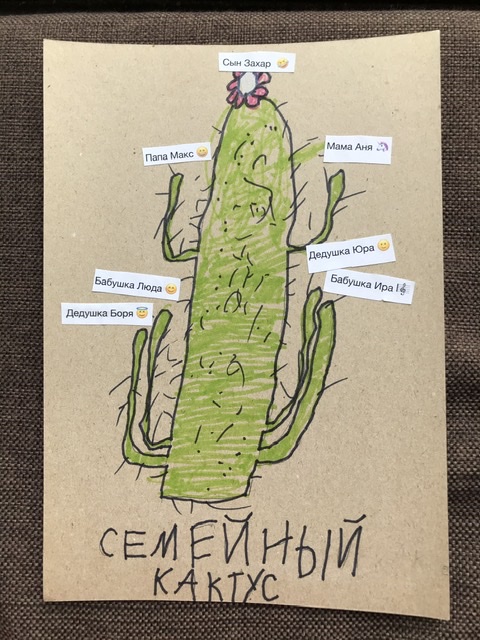 Сын Захар 🤪
Папа Макс 😊
Мама Аня 🦄
Дедушка Юра 🙂
Бабушка Люда 😊
Бабушка Ира 🎼
Дедушка Боря 😇
СЕМЕЙНЫЙ
КАКТУС